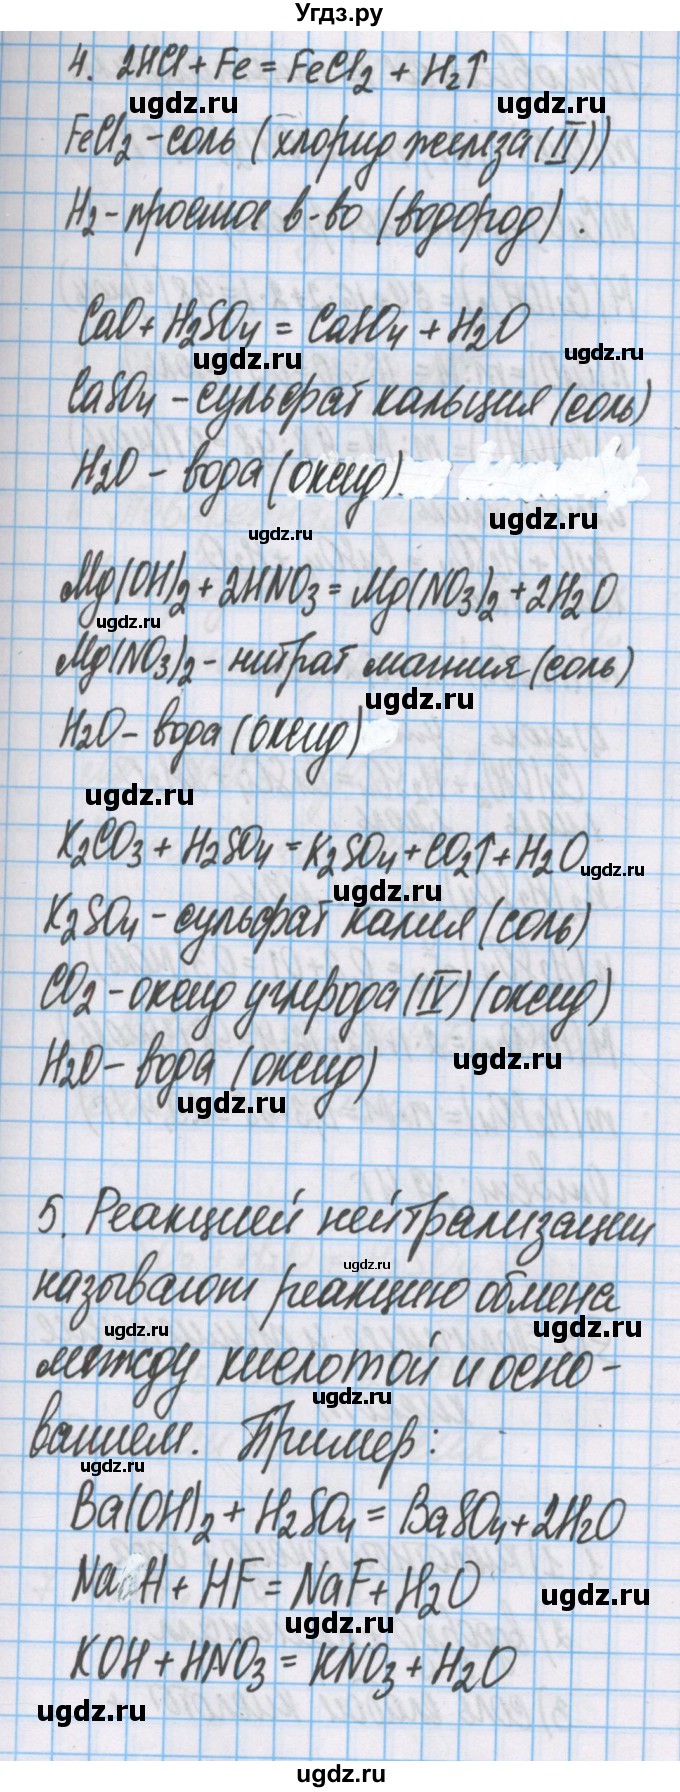 Угдз.ру
4. 2HCl + Fe = FeCl₂ + H₂↑
ugdz.ru ugdz.ru
FeCl₂ - соль (хлорид железа (II))
H₂ - простое в-во (водород).
CaO + H₂SO₄ = CaSO₄ + H₂O
ugdz.ru ugdz.ru
CaSO₄ - сульфат кальция (соль)
H₂O - вода (оксид)
ugdz.ru ugdz.ru
Mg(OH)₂ + 2HNO₃ = Mg(NO₃)₂ + 2H₂O
ugdz.ru
Mg(NO₃)₂ - нитрат магния (соль)
ugdz.ru
H₂O - вода (оксид)
ugdz.ru
K₂CO₃ + H₂SO₄ = K₂SO₄ + CO₂↑ + H₂O
ugdz.ru ugdz.ru
K₂SO₄ - сульфат калия (соль)
CO₂ - оксид углерода (IV) (оксид)
H₂O - вода (оксид)
ugdz.ru ugdz.ru
5. Реакцией нейтрализации
ugdz.ru
называют реакцию обмена
ugdz.ru ugdz.ru
между кислотой и осно-
ugdz.ru
ванием. Пример:
ugdz.ru
Ba(OH)₂ + H₂SO₄ = BaSO₄ + 2H₂O
NaOH + HF = NaF + H₂O
ugdz.ru ugdz.ru
KOH + HNO₃ = KNO₃ + H₂O
ugdz.ru
ugdz.ru